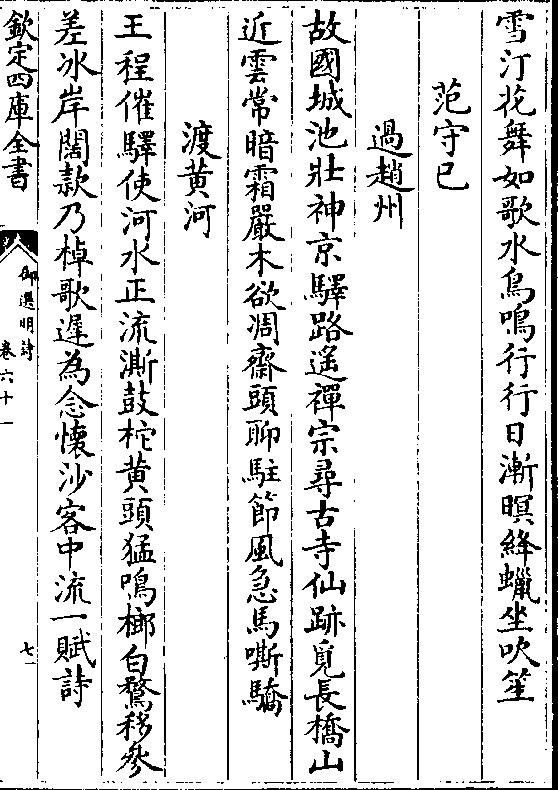 雪汀花舞如歌水鳥鳴行行日漸暝絳蠟坐吹笙
范守已
過趙州
故國城池壯神京驛路遙禪宗尋古寺仙跡覓長橋山
近雲常暗霜嚴木欲凋齋頭聊駐節風急馬嘶驕
渡黃河
王程催驛使河水正流澌鼓柁黃頭猛鳴榔白鷺移參
差冰岸闊款乃棹歌遲為念懷沙客中流一賦詩
欽定四庫全書
御選明詩
卷六十一
七一